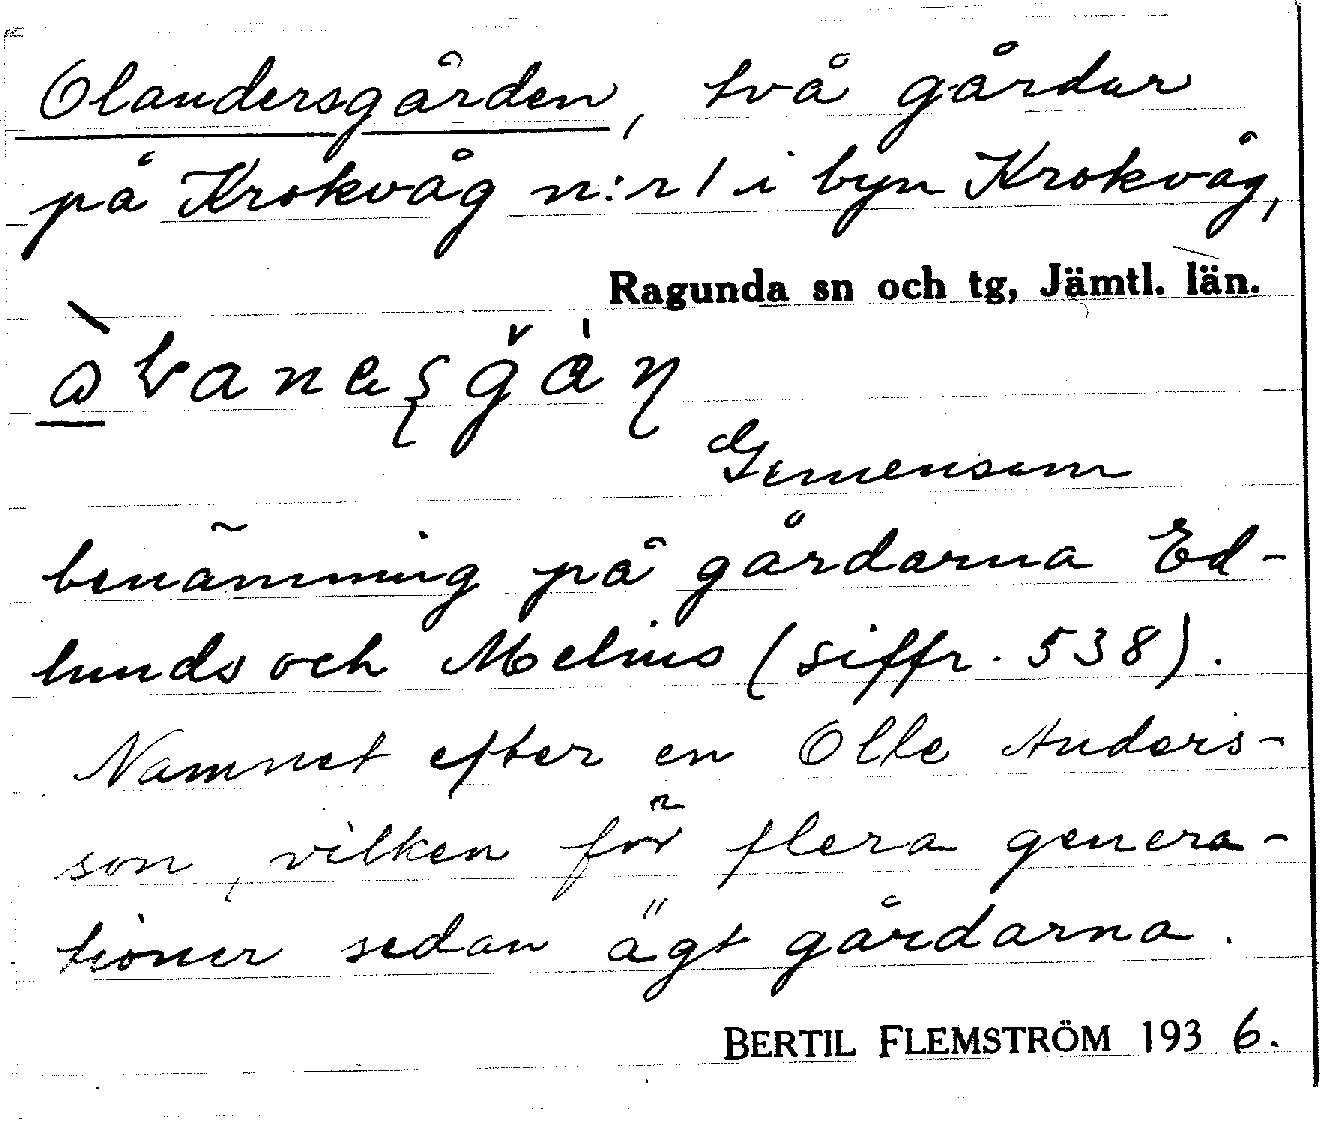 Olandersgården, två gårdar
på Krokvåg n:r 1 i byn Krokvåg,
Ragunda sn och tg, Jämtl. län.
Gemensam
benämning på gårdarna Ed-
lunds och Melins (siffr. 538).
Namnet efter en Olle Anders-
son, vilken för flera genera-
tioner sedan ägt gårdarna.
BERTIL FLEMSTRÖM 1936.